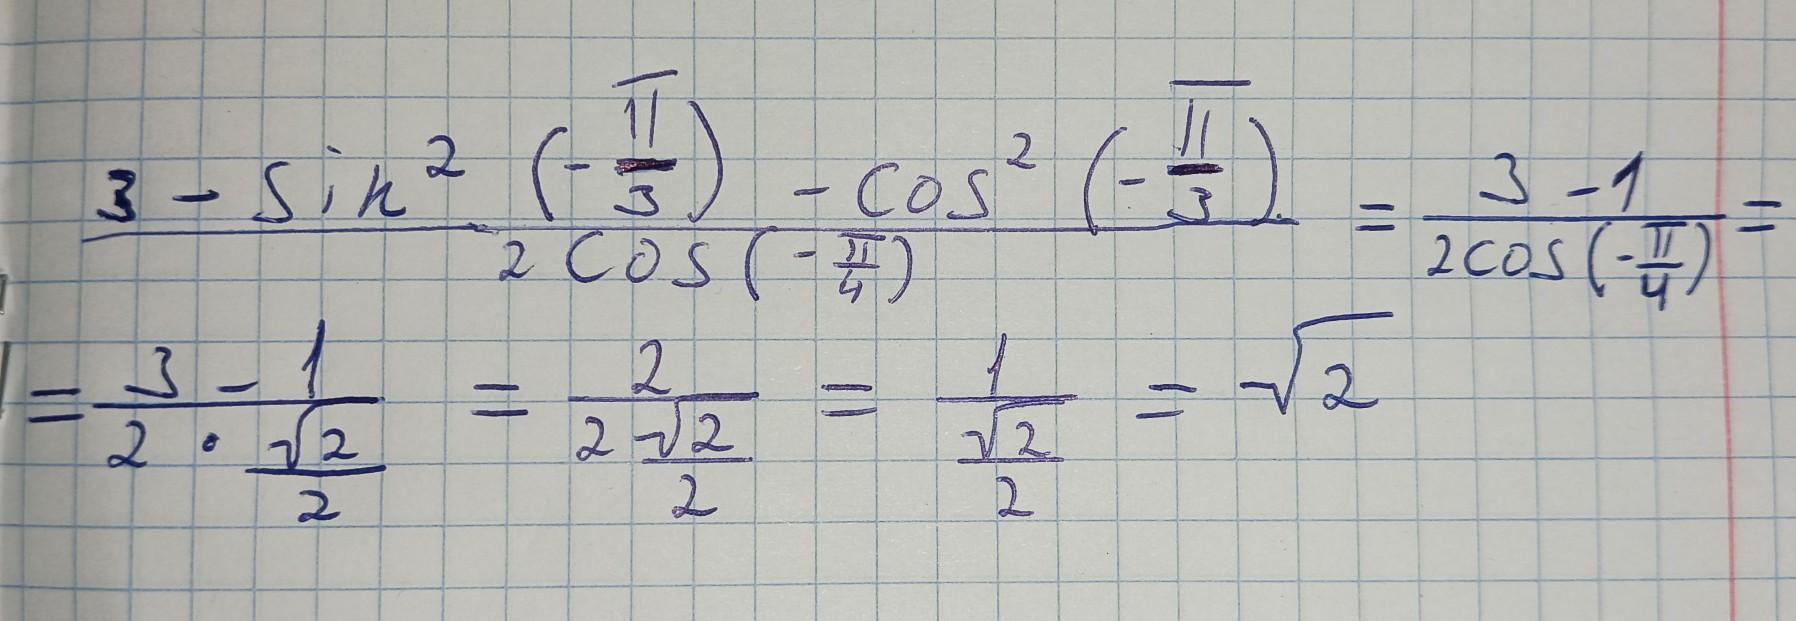 \frac{3 - \sin^2(-\frac{\pi}{3}) - \cos^2(-\frac{\pi}{3})}{2\cos(-\frac{\pi}{4})} = \frac{3 - 1}{2\cos(-\frac{\pi}{4})} =
= \frac{3 - 1}{2 \cdot \frac{\sqrt{2}}{2}} = \frac{2}{2\frac{\sqrt{2}}{2}} = \frac{1}{\frac{\sqrt{2}}{2}} = \sqrt{2}